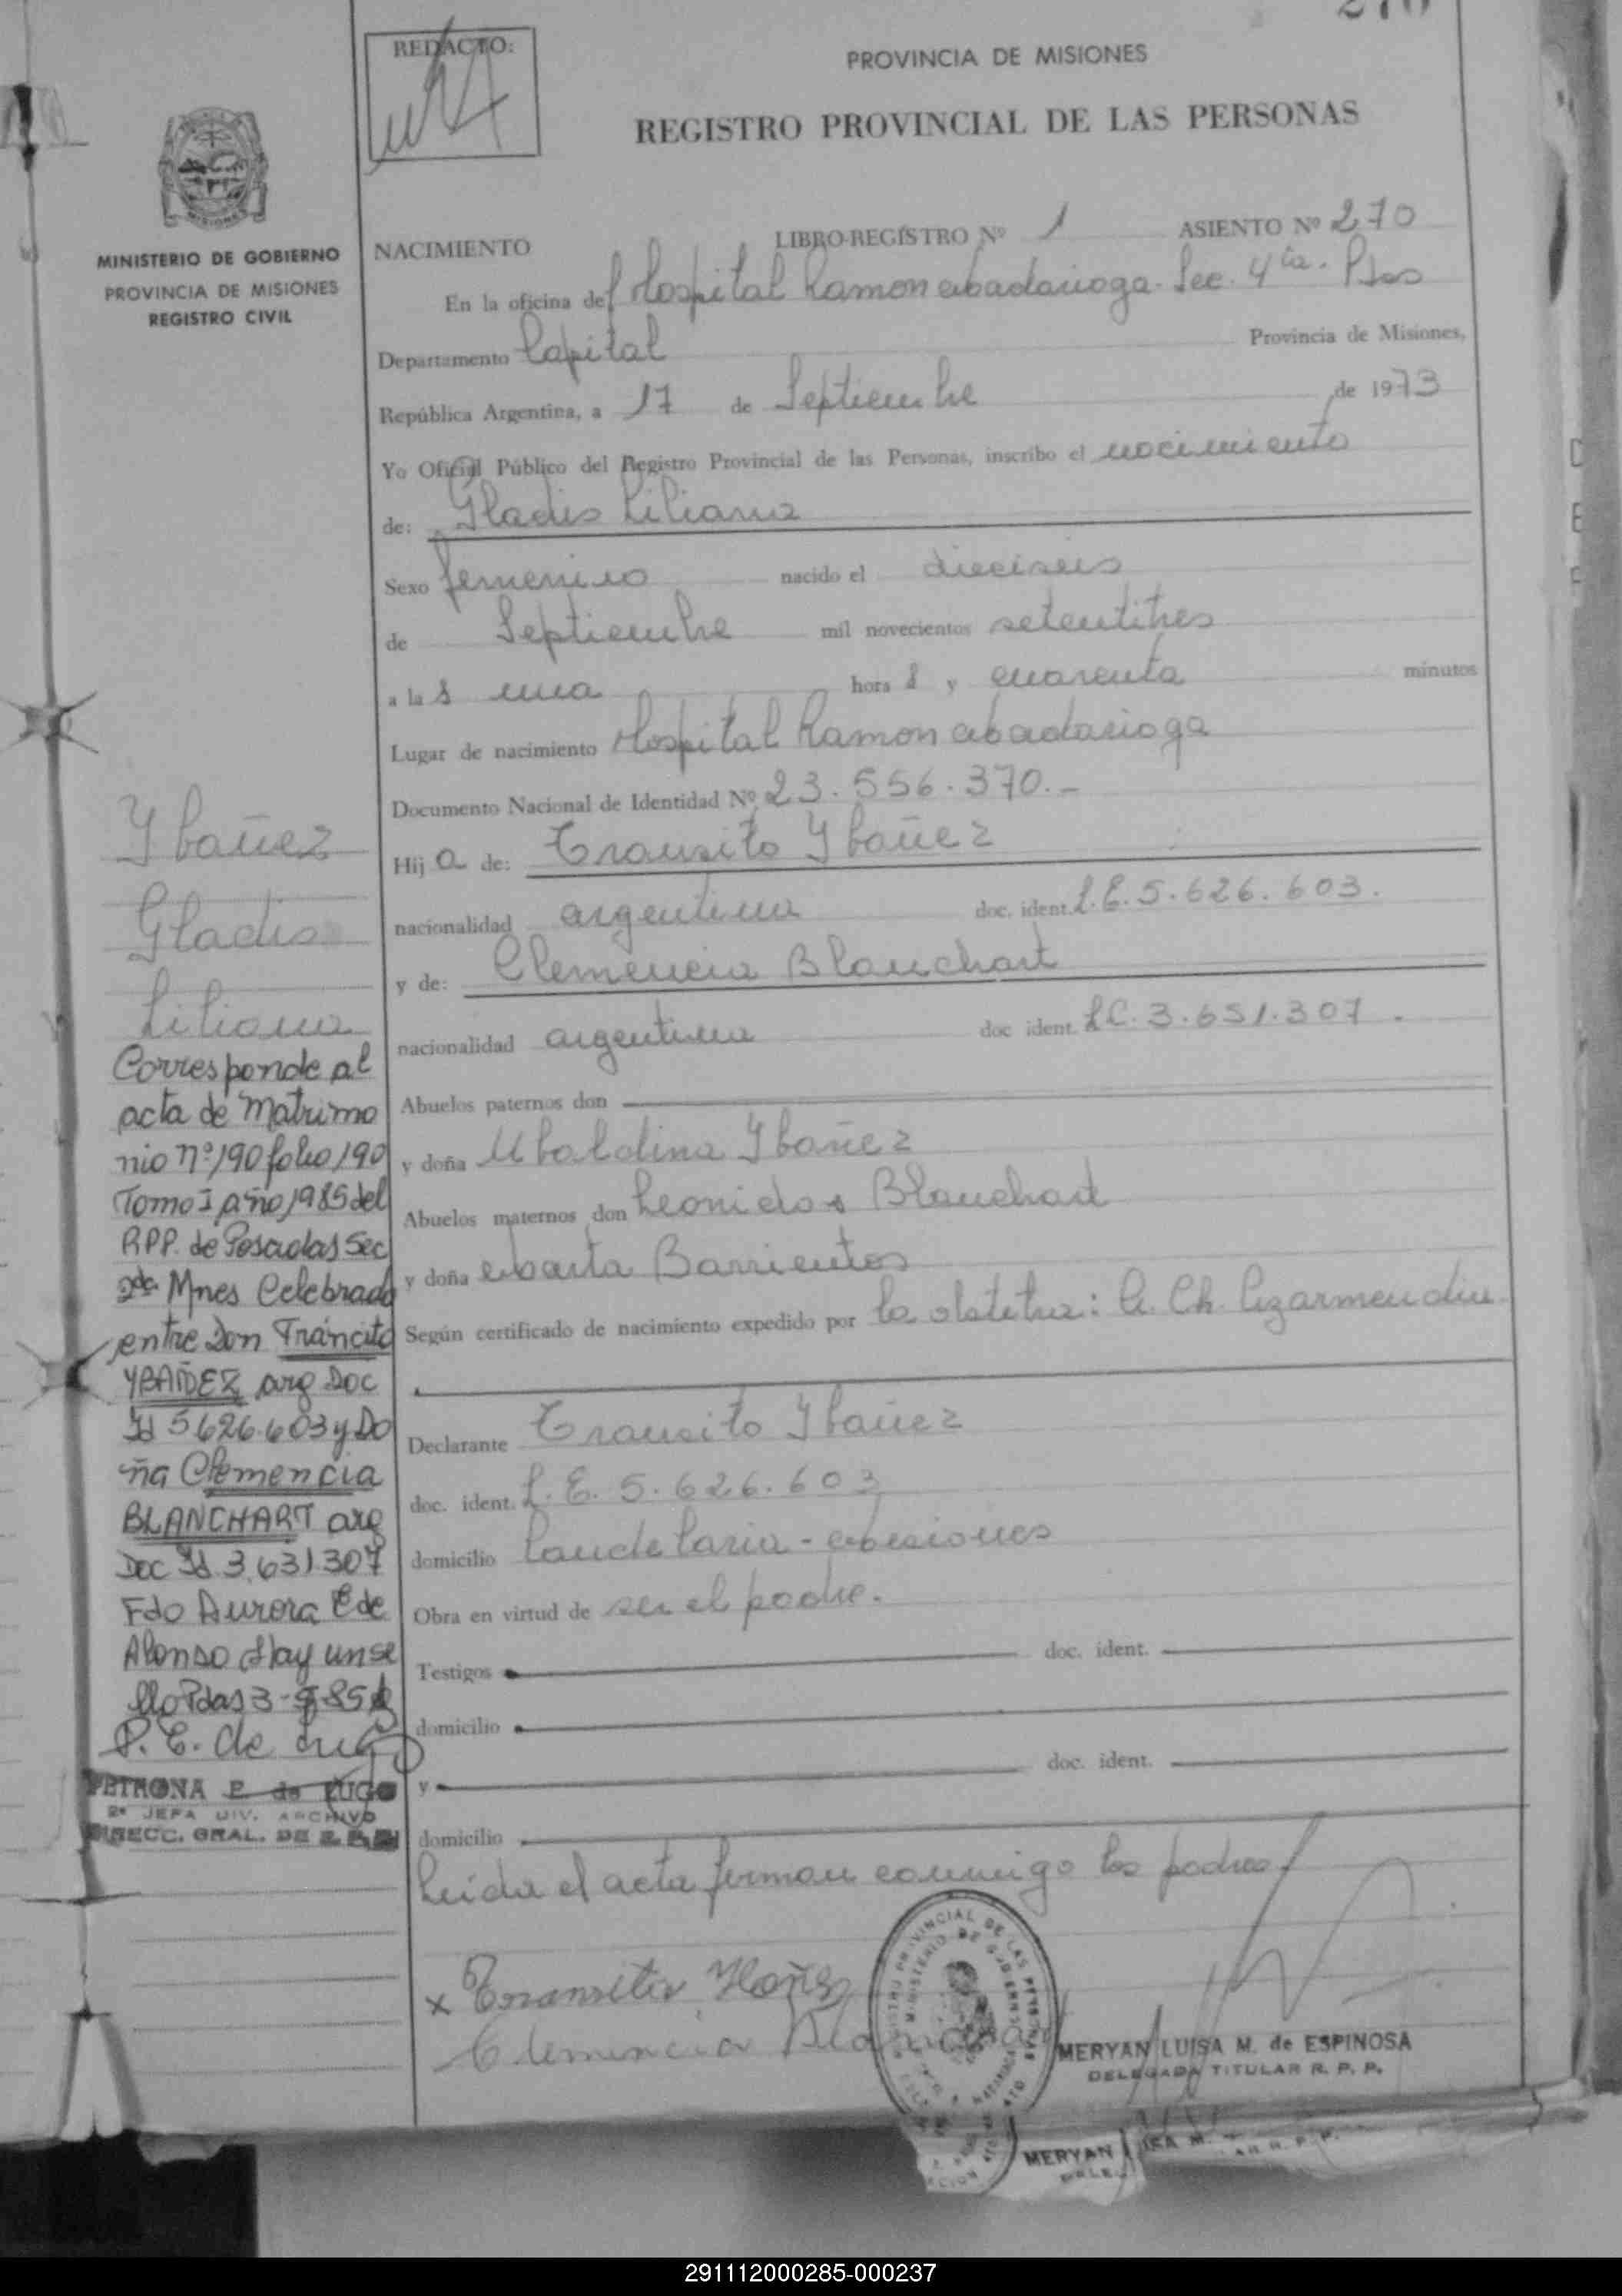 270
REDACTO:
PROVINCIA DE MISIONES
REGISTRO PROVINCIAL DE LAS PERSONAS
MISIONES
MINISTERIO DE GOBIERNO
PROVINCIA DE MISIONES
REGISTRO CIVIL
NACIMIENTO LIBRO-REGISTRO Nº 1 ASIENTO Nº 270
En la oficina del Hospital Ramon Madariaga. Sec. 4ta. Pdas
Departamento Capital Provincia de Misiones,
República Argentina, a 17 de Septiembre de 1973
Yo Oficial Público del Registro Provincial de las Personas, inscribo el nacimiento
de: Gladis Liliana
Sexo femenino nacido el dieciseis
de Septiembre mil novecientos setentitres
a la s una hora s y cuarenta minutos
Lugar de nacimiento Hospital Ramon Madariaga
Documento Nacional de Identidad Nº 23.556.370.-
Hij a de: Transito Ybañez
nacionalidad argentina doc. ident. L.E. 5.626.603.
y de: Clemencia Blanchart
nacionalidad argentina doc ident. L.C. 3.651.307.
Abuelos paternos don
y doña Ubaldina Ybañez
Abuelos maternos don Leonidas Blanchart
y doña Marta Barrientos
Según certificado de nacimiento expedido por la obstetra: C. Ch.
Declarante Transito Ybañez
doc. ident. L.E. 5.626.603
domicilio Candelaria - Misiones
Obra en virtud de ser el padre.
Testigos doc. ident.
domicilio
y doc. ident.
domicilio
Leida el acta firman conmigo los padres
x Transito Ybañez
Clemencia Blanchart
MERYAN LUISA M. de ESPINOSA
DELEGADA TITULAR R. P. P.
MERYAN
Ybañez
Gladis
Liliana
Corresponde al
acta de Matrimo
nio nº 190 folio 190
Tomo I año 1985 del
RPP. de Posadas Sec
2da Mnes Celebrado
entre Don Tráncito
YBAÑEZ arg Doc
Id 5626.603 y Do
ña Clemencia
BLANCHART arg
Doc Id. 3.631.307
Fdo Aurora E de
Alonso Hay un se
llo Pdas 3-9-85
P. E. de Lugo
PETRONA E. de LUGO
2ª JEFA DIV. ARCHIVO
DIRECC. GRAL. DE R. P. P.
291112000285-000237